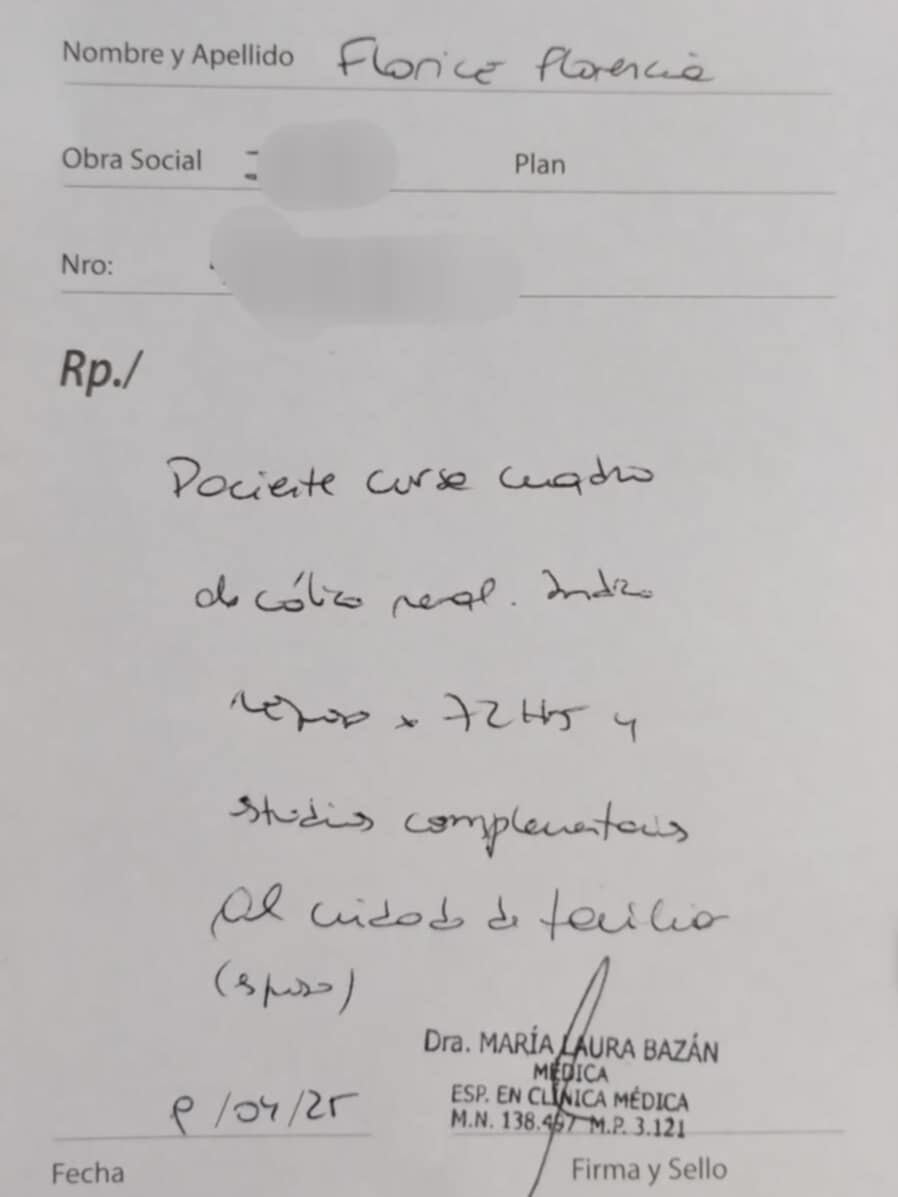 Nombre y Apellido Florice Florencia
Obra Social Plan
Nro:
Rp./
Paciente curse cuadro
de cólico renal. Indico
reposo x 72 Hs y
studios complementarios
Al cuidado de familia
(sposo)
/04/25
Dra. MARÍA LAURA BAZÁN
MÉDICA
ESP. EN CLÍNICA MÉDICA
M.N. 138.497 M.P. 3.121
Fecha Firma y Sello